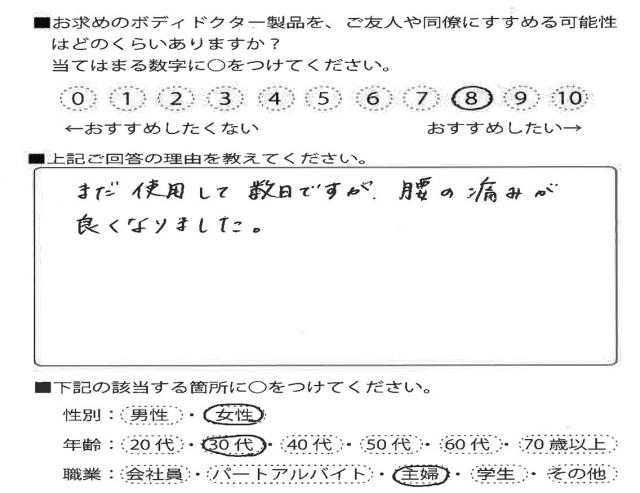 ■お求めのボディドクター製品を、ご友人や同僚にすすめる可能性
はどのくらいありますか？
当てはまる数字に○をつけてください。
0 1 2 3 4 5 6 7 8 9 10
←おすすめしたくない おすすめしたい→
■上記ご回答の理由を教えてください。
まだ使用して数日ですが、腰の痛みが
良くなりました。
■下記の該当する箇所に○をつけてください。
性別：男性・女性
年齢：20代・30代・40代・50代・60代・70歳以上
職業：会社員・パートアルバイト・主婦・学生・その他